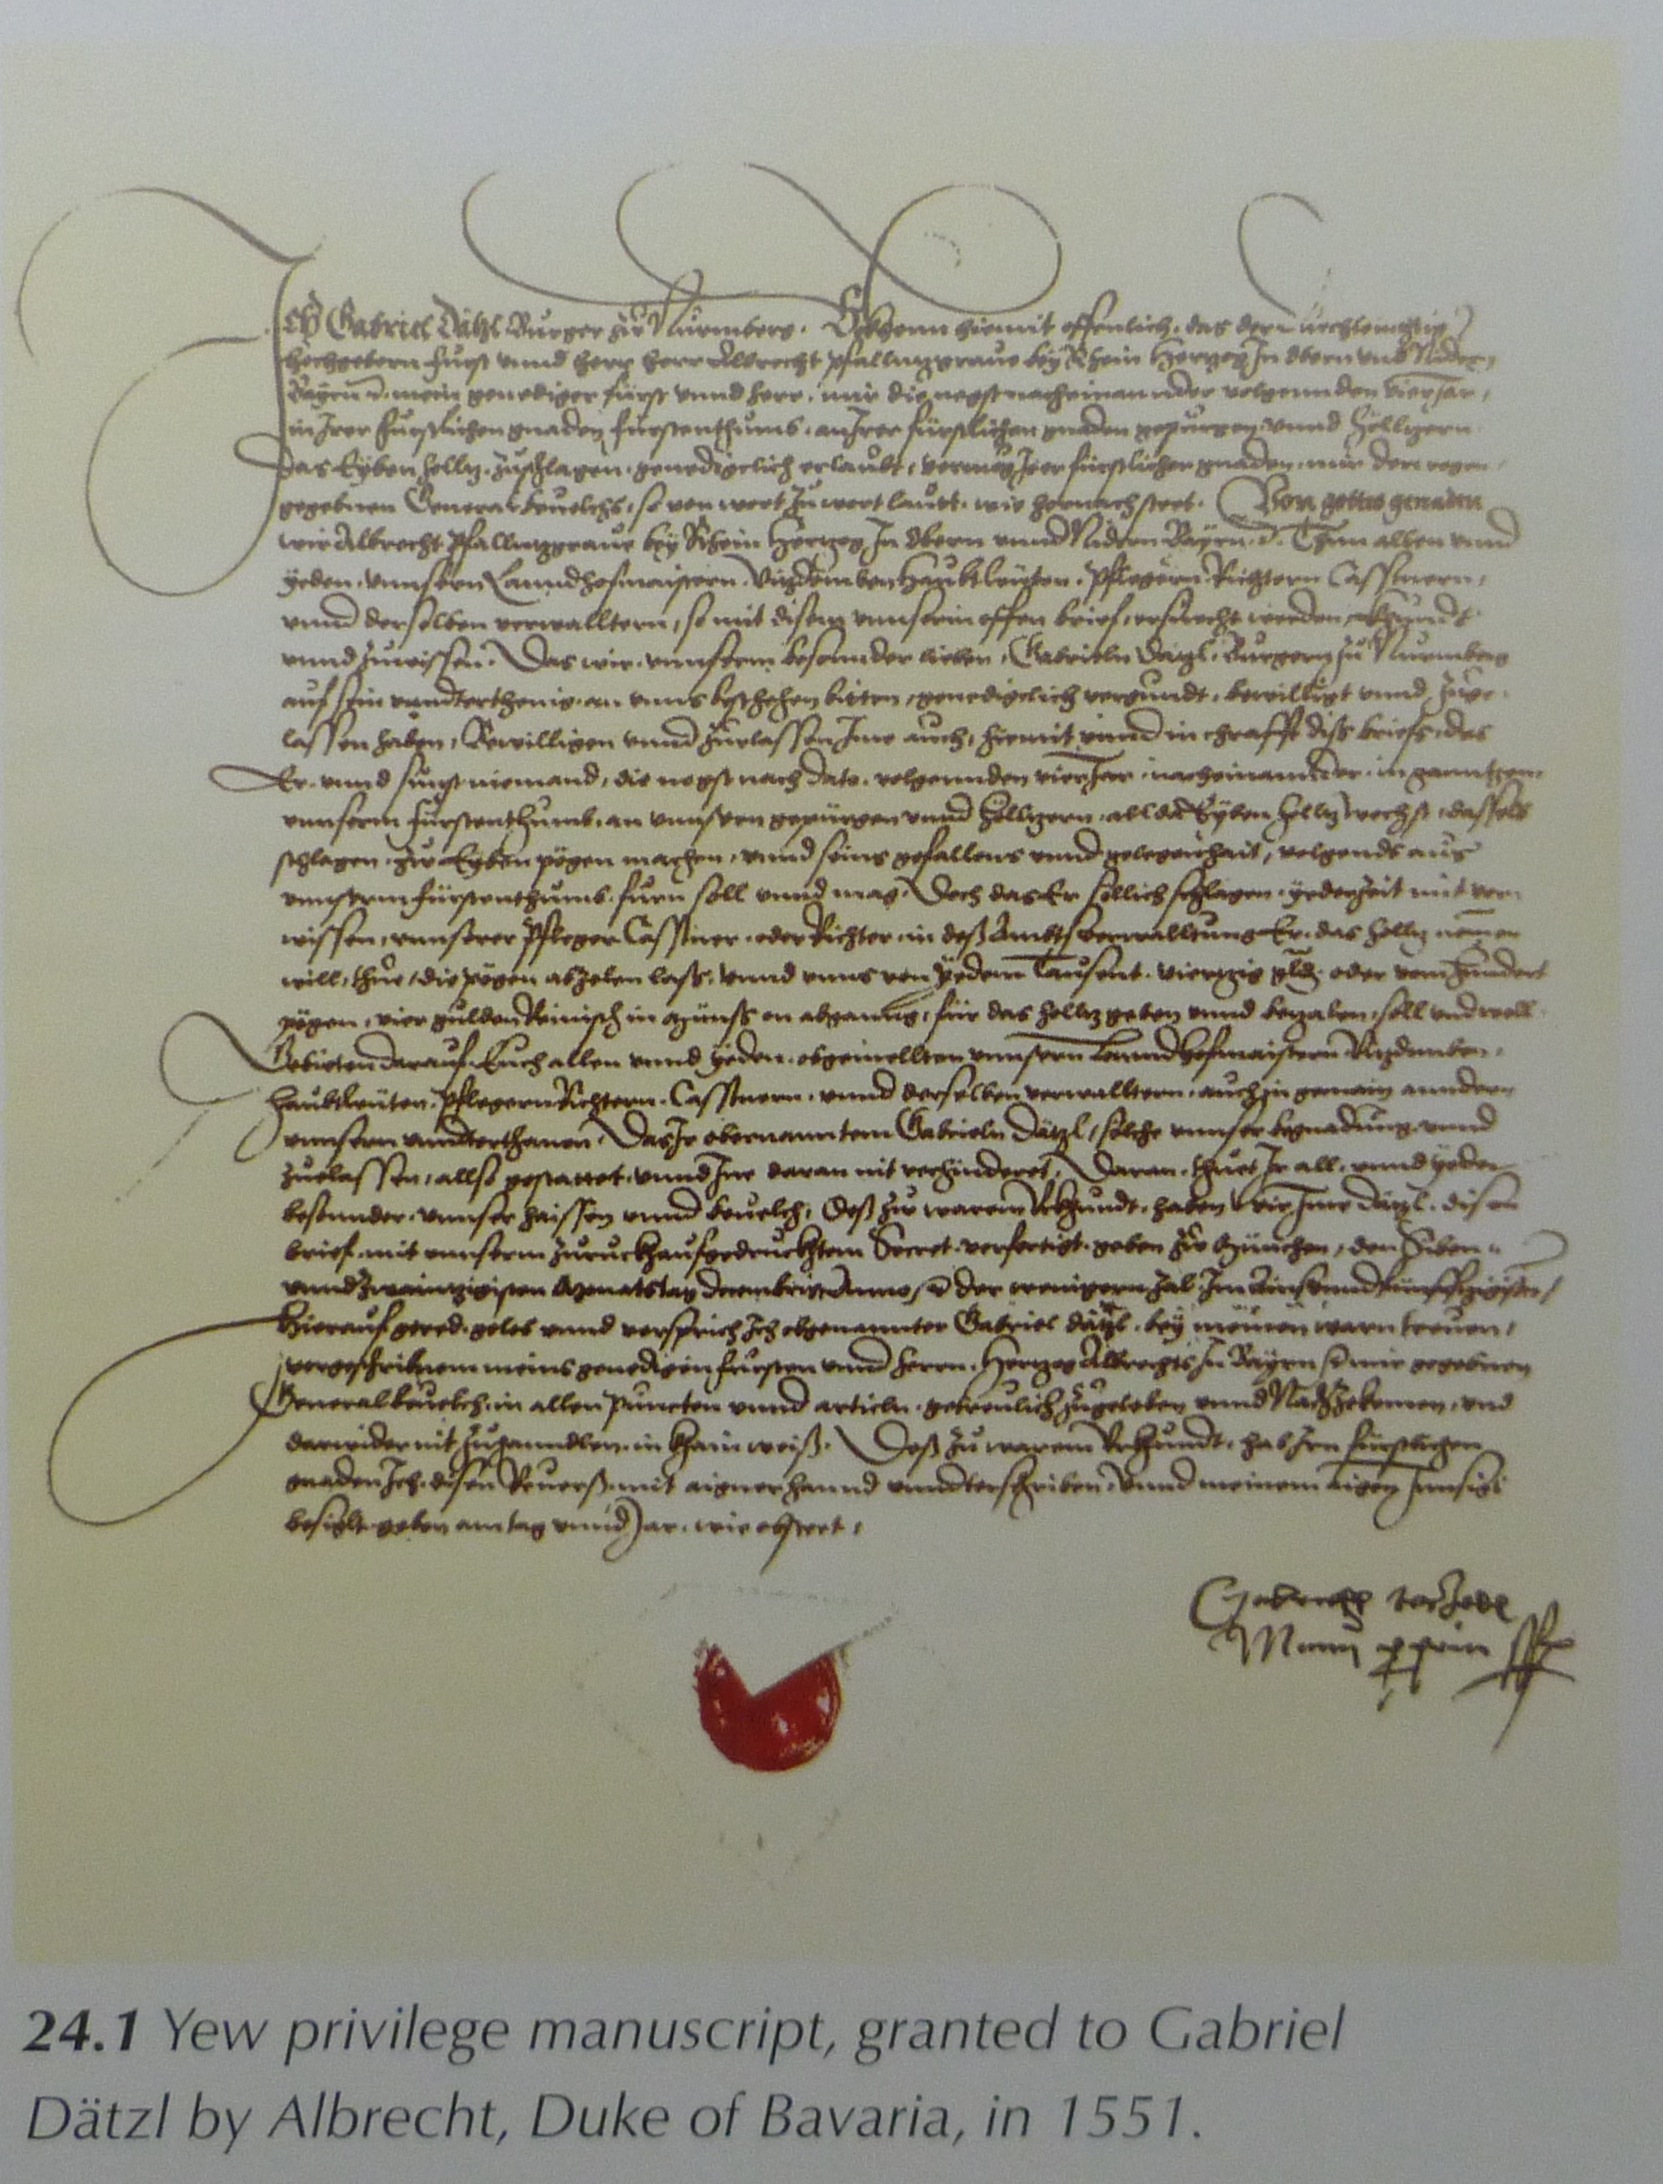 Ich Gabriel Dätzl Burger zu Nurmberg. Bekhenn hiemit offenlich, das der
hochgeborn Furst unnd herr herr Albrecht Pfalltzgrave bey Rhein Hertzog In Obern und Nidern
Bayrn mein genediger fürst unnd herr, mir die negst nacheinannder volgennden vier Jar,
in Irer Fürstlichen gnaden fürstenthumb, an Irer fürstlichen gnaden gepürgen unnd höltzern
Das Eyben holltz zuschlagen genedigclich erlaubt, vermög Irer fürstlicher gnaden mir
gegebnen General bevelchs, so von wort zu wort laut wie hernach steet. Von gottes genaden
wir Albrecht Pfalltzgrave bey Rhein Hertzog In Obern unnd Nidern Bayrn Thun allen unnd
yeden unnsern Lanndhofmaistern Vitzdomben Haubtleuten, Pflegern Richtern Casstnern,
unnd derselben verwalltern, so mit disem unnserm offen brief ersuecht werden khundt
unnd zuwissen. Das wir unnserm besonnder lieben, Gabrieln Dätzl, Burgern zu Nurmberg
auf sein unndterthenig an unns beschehen bitten, genedigclich vergundt, bewilligt unnd zuge
lassen haben, Bewilligen unnd zuelassen Ime auch, hiemit unnd in chrafft diss briefs, das
Er unnd sunst niemand, die negst nach dato volgennden vier Jar nacheinannder in ganntzem
unnserm fürstenthumb, an unnsern gepürgen unnd höltzern, all das Eyben holltz wechst, dasselb
schlagen zu Eyben pögen machen, unnd seins gefallens unnd gelegenhait, volgends aus
unnserm fürstenthumb fürn soll unnd mag. Doch das Er sollich schlagen yederzeit mit vor
wissen, unnserer Pfleger Casstner oder Richter in deß Ambtsverwalltung Er das holltz nemen
will, thue, die pögen abzelen lass, unnd unns von yedem Tausent viertzig gld oder vom hundert
pögen, vier gulden Reinisch in münss on abganng, für das holltz geben unnd bezalen soll und well
Gebieten darauf Euch allen unnd yeden obgemellten unnsern Lanndhofmaistern Vitzdomben
Haubtleuten Pflegern Richtern Casstnern unnd derselben verwalltern auch in gemain anndern
unnsern unndterthanen Das Ir obernanntem Gabrieln Dätzl, solche unnser begnadung unnd
zuelassen, allso gestattet unnd Ine daran nit verhinderet, Daran thuet Ir all unnd yeder
besonnder unnser haissen unnd bevelch, Deß zu warem Urkhundt, haben wir Ime Dätzl disen
brief mit unnserm zuruckh aufgedruckhtem Secret verfertigt geben zu München, den Siben
unndzwaintzigisten Monatstag decembris Anno der wenigern Zal Im Ainsunndfünfftzigisten,
Hierauf gered gelob unnd versprich Ich obgenannter Gabriel dätzl bey meinen warn treuen,
vorgeschribnem meins genedigen fürsten unnd herrn, Hertzog Albrechts In Bayrn mir gegebnen
General bevelch, in allen Puncten unnd articln getreulich zugeleben unnd Nachzekomen, und
darwider nit zuhanndlen in khain weiß. Deß zu warem Urkhundt, hab Irn fürstlichen
gnaden Ich disen Reverß mit aigner hannd unndterschriben, Unnd meinem aigen Innsigl
besiglt geben am tag unnd Jar wie obsteet,
24.1 Yew privilege manuscript, granted to Gabriel
Dätzl by Albrecht, Duke of Bavaria, in 1551.